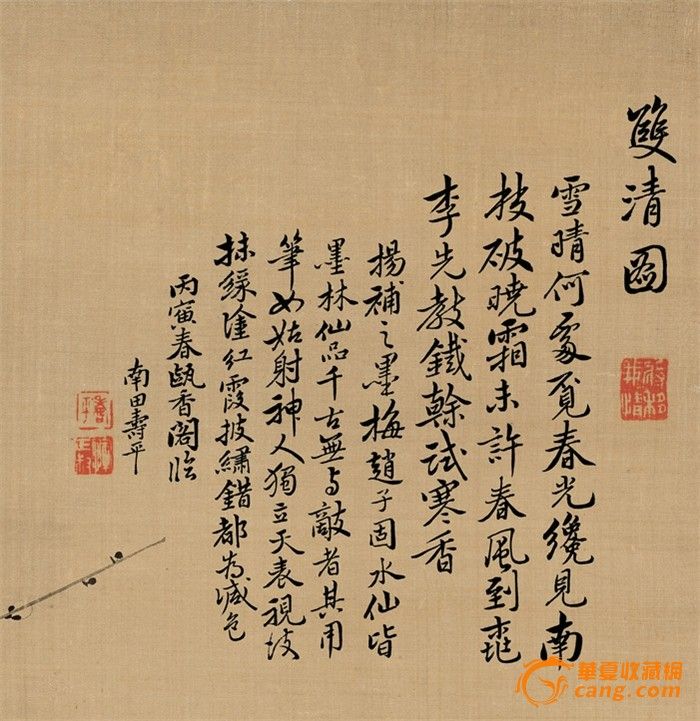 雙清圖
雪晴何處覓春光纔見南
枝破曉霜未許春風到桃
李先教鐵榦試寒香
揚補之墨梅趙子固水仙皆
墨林仙品千古無与敵者其用
筆如姑射神人獨立天表視彼
抹綠塗紅霞披繡錯都為減色
丙寅春甌香閣臨
南田壽平
華夏收藏網
cang.com